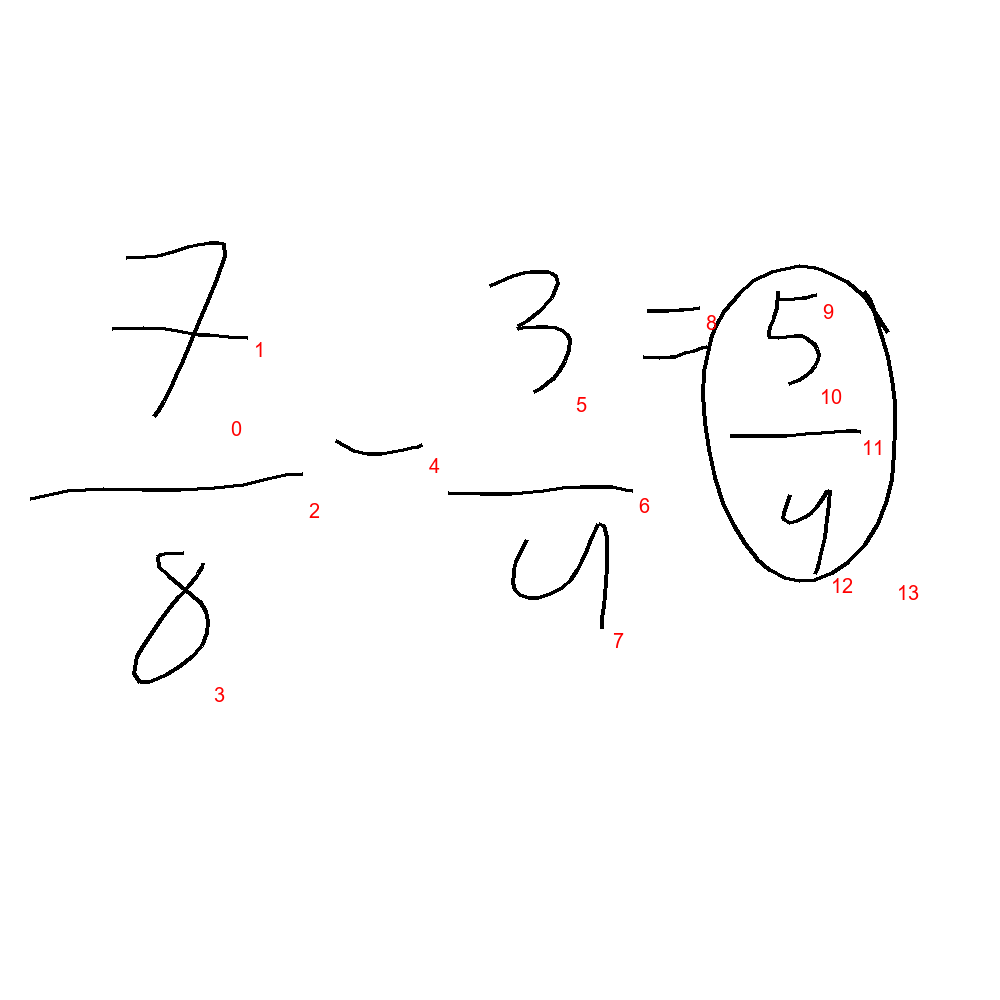 7/8 - 3/4 = 5/4
0 1 2 3 4 5 6 7 8 9 10 11 12 13